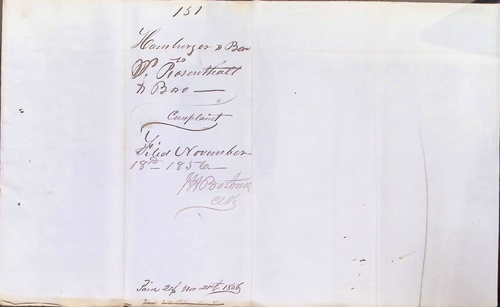 151
Hamburger & Bro
vs
Rosenthall
& Bro
Complaint
Filed November
18th 1856
Clk
Nov 1856